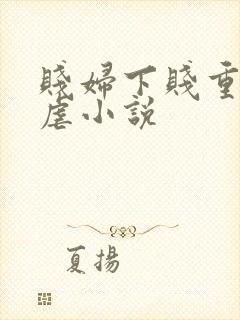 賤婦下賤重
虐小說
夏揚